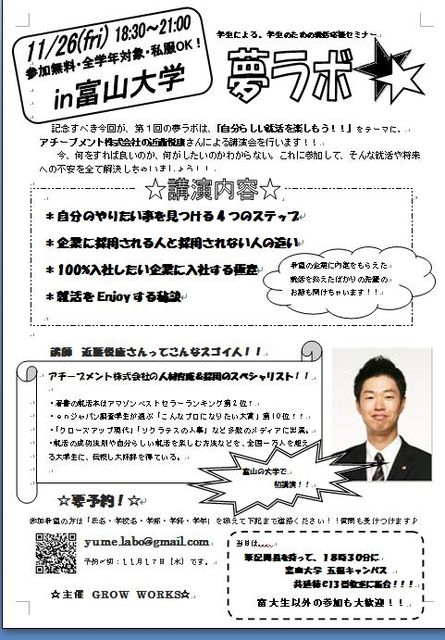 11/26(fri) 18:30~21:00
参加無料・全学年対象・私服OK!
in富山大学
学生による、学生のための就活応援セミナー
夢ラボ
記念すべき今回が、第1回の夢ラボは、「自分らしい就活を楽しもう!!」をテーマに、
アチーブメント株式会社の近藤悦康さんによる講演会を行います!!
今、何をすれば良いのか、何がしたいのかわからない。これに参加して、そんな就活や将来
への不安を全て解決しちゃいましょう!!
☆講演内容☆
*自分のやりたい事を見つける4つのステップ
*企業に採用される人と採用されない人の違い
*100%入社したい企業に入社する極意
*就活をEnjoyする秘訣
希望の企業に内定をもらえた
就活を終えたばかりの先輩の
お話も聞けちゃいます!!
講師 近藤悦康さんってこんなスゴイ人!!
アチーブメント株式会社の人材育成&採用のスペシャリスト!!
・著書の就活本はアマゾンベストセラーランキング第2位!
・enジャパン調査学生が選ぶ「こんなプロになりたい大賞」第10位!!
・「クローズアップ現代」「ソクラテスの人事」など多数のメディアに出演。
・就活の成功法則や自分らしい就活を楽しむ方法などを、全国一万人を超え
る大学生に、伝授し大好評を得ている。
富山の大学で
初講演!!
☆要予約!☆
参加希望の方は「氏名・学校名・学部・学科・学年」を添えて下記まで連絡ください!!質問も受けつけます♪
yume.labo@gmail.com
予約〆切:11月17日(水)です。
☆主催 GROW WORKS☆
当日は
筆記用具を持って、18時30分に
富山大学 五福キャンパス
共通棟C13番教室に集合!!!
富大生以外の参加も大歓迎!!